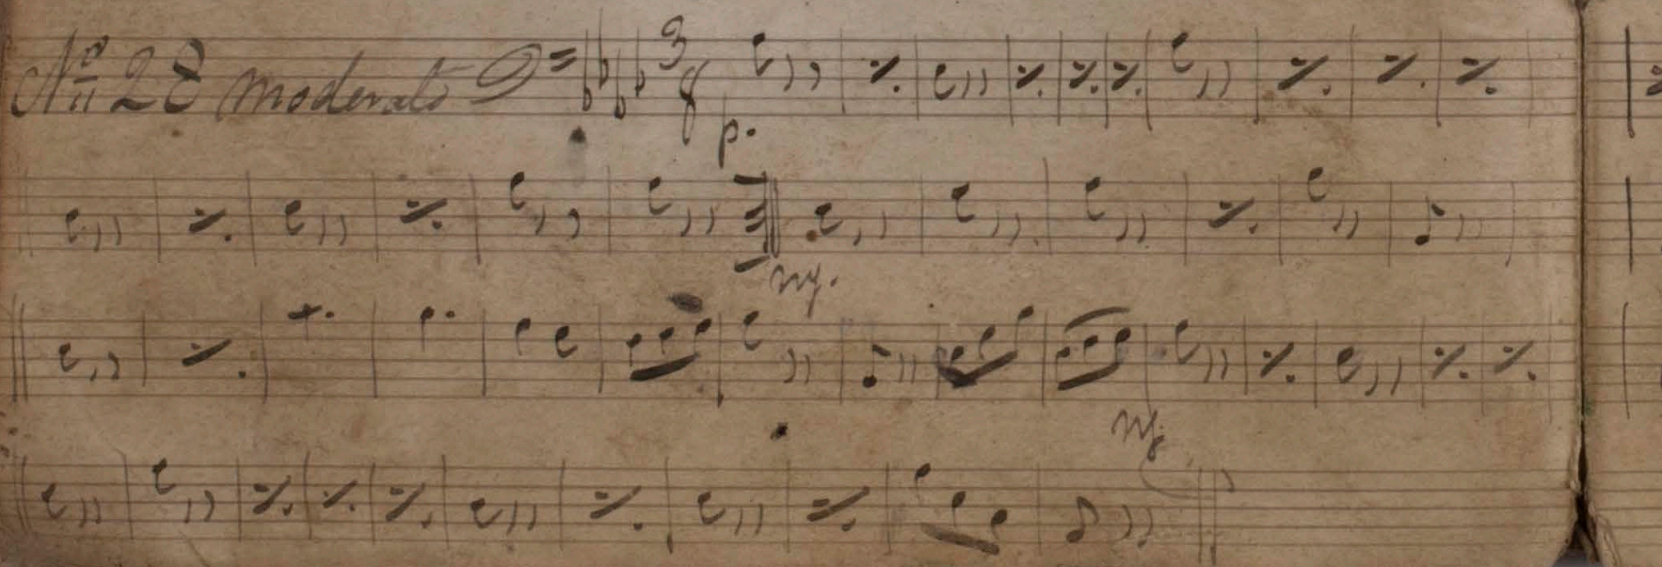 № 28 moderato 3/8
p.
mf.
mf.